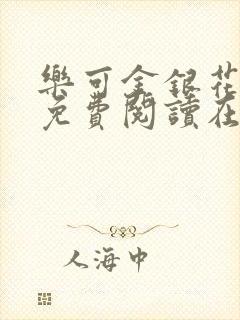 樂可金銀花
免費閱讀在
人海中